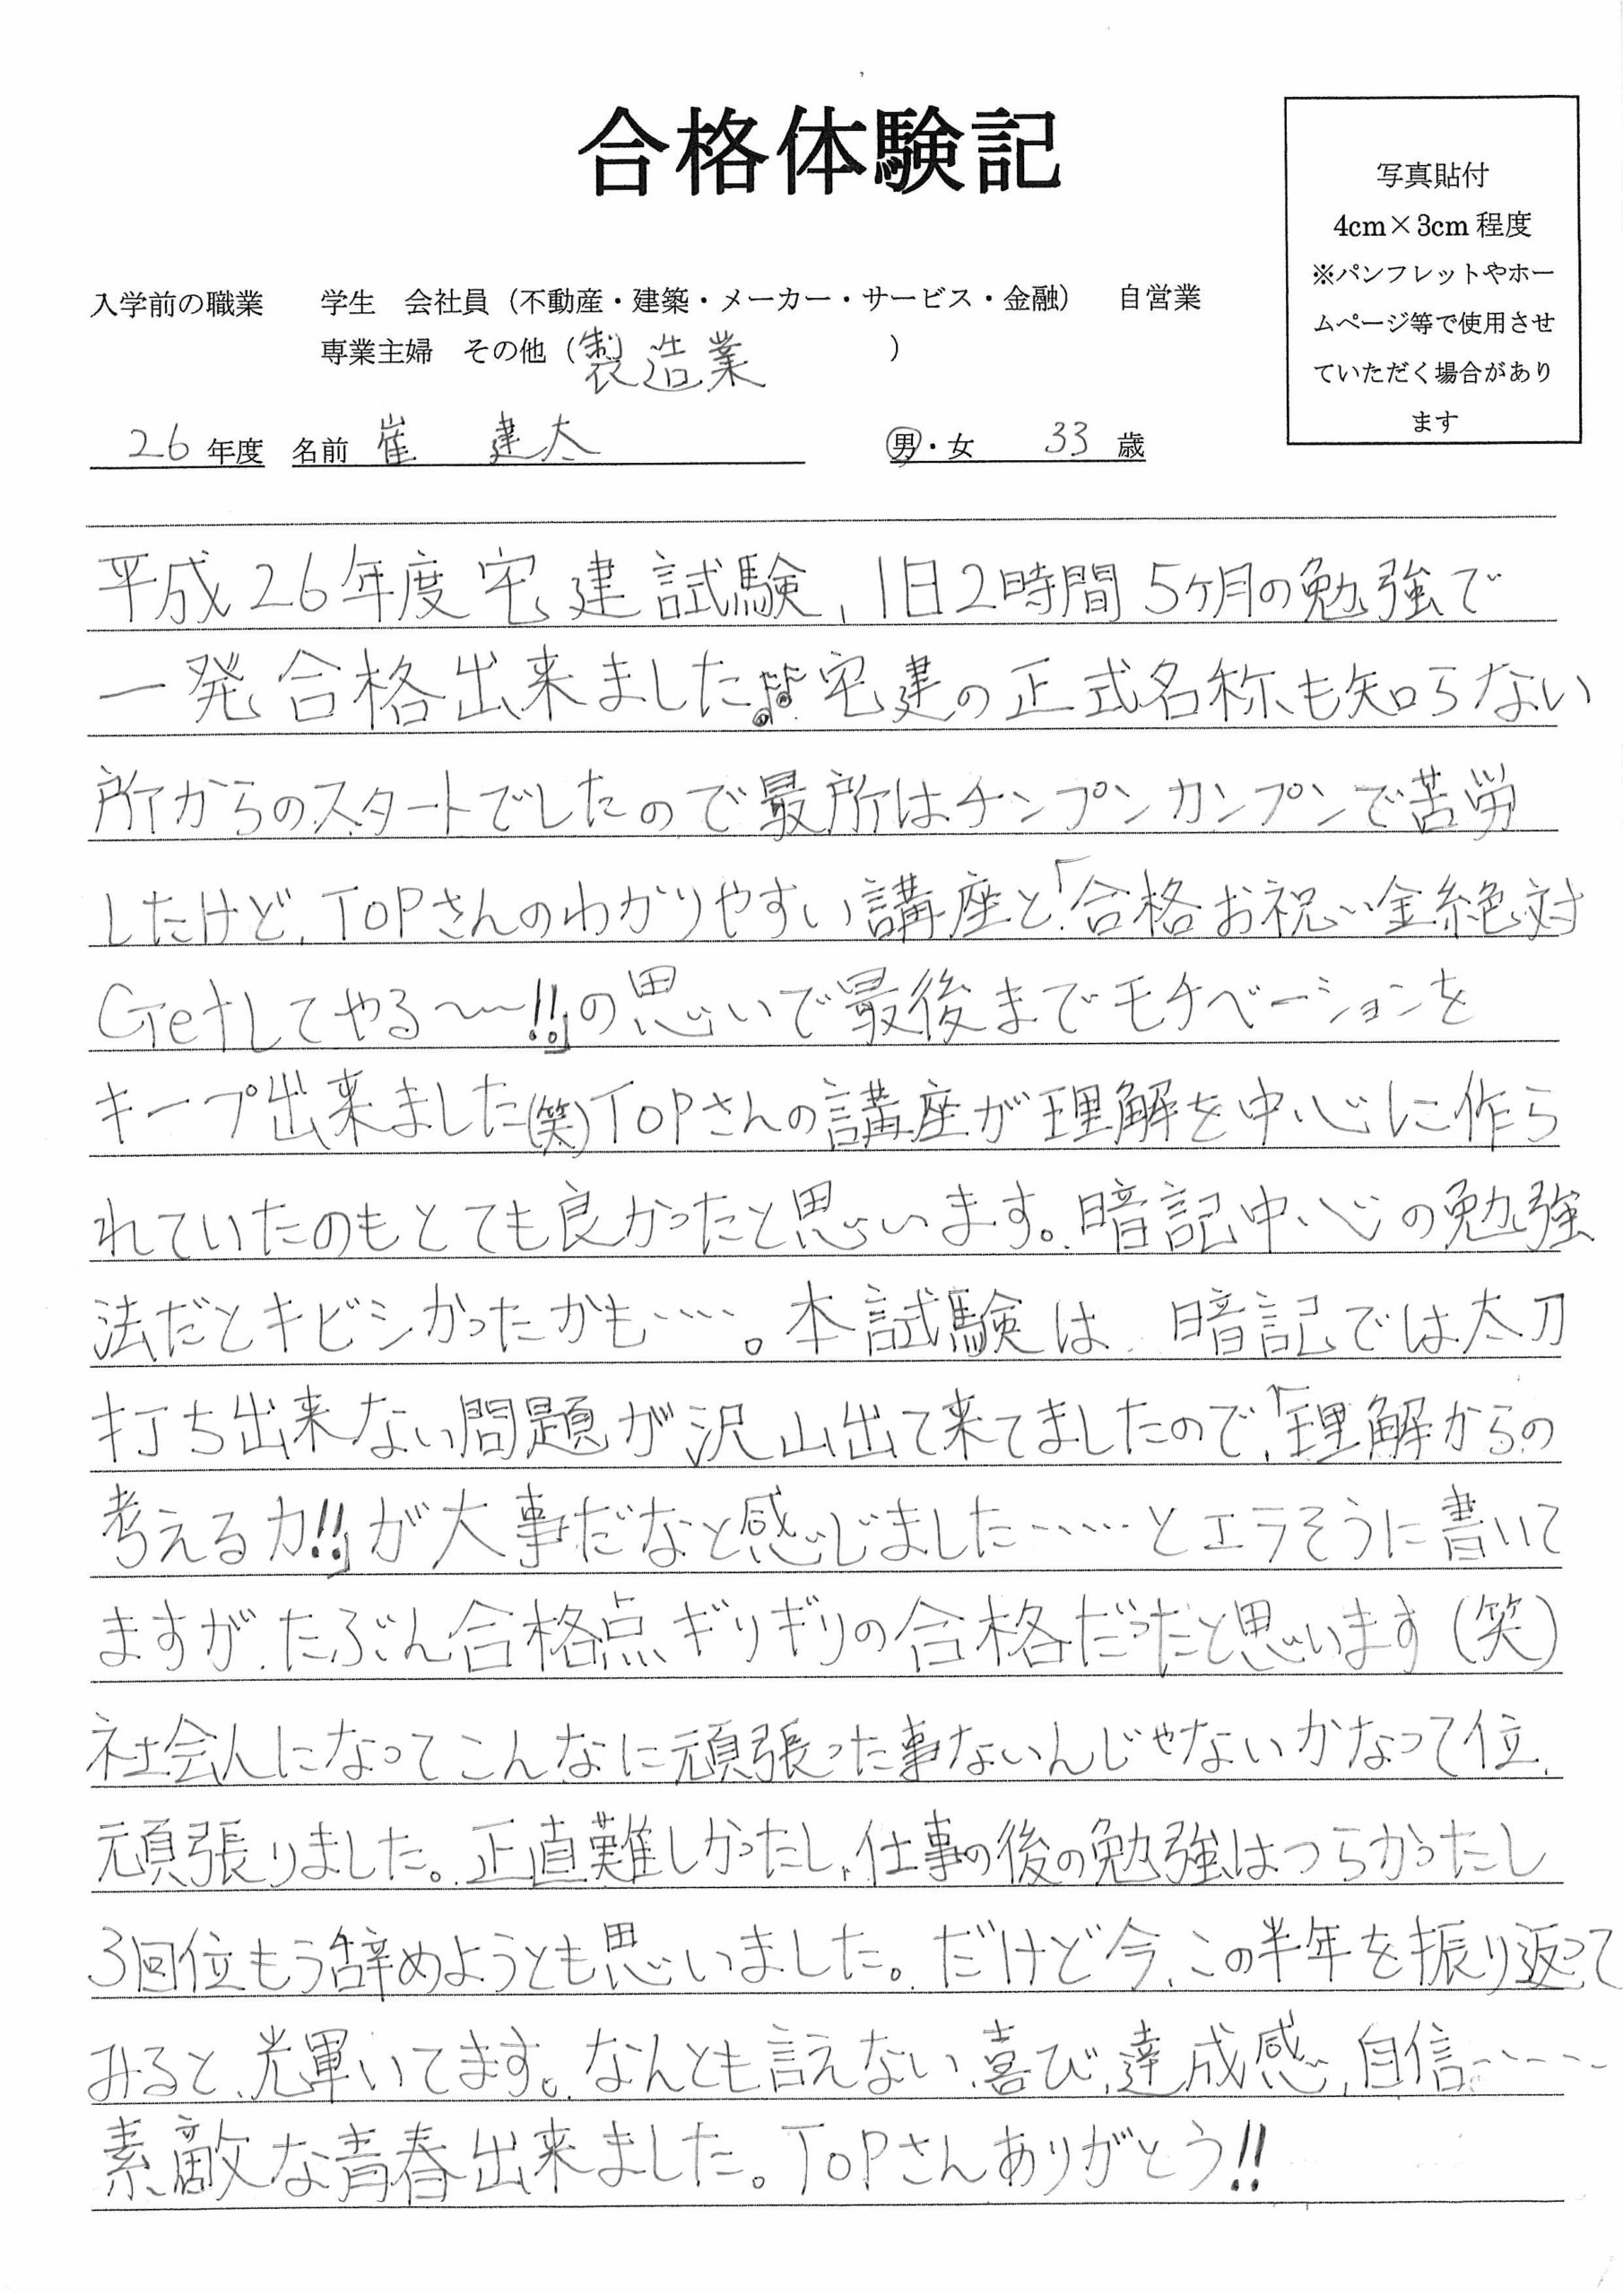 合格体験記
写真貼付
4cm×3cm 程度
※パンフレットやホー
ムページ等で使用させ
ていただく場合があり
ます
入学前の職業 学生 会社員（不動産・建築・メーカー・サービス・金融） 自営業
専業主婦 その他（製造業 ）
26 年度 名前 崔 建太 男・女 33 歳
平成26年度宅建試験、1日2時間5ヶ月の勉強で
一発合格出来ました♬宅建の正式名称も知らない
所からのスタートでしたので最所はチンプンカンプンで苦労
したけど、TOPさんのわかりやすい講座と「合格お祝い金絶対
Getしてやる〜!!」の思いで最後までモチベーションを
キープ出来ました(笑)TOPさんの講座が理解を中心に作ら
れていたのもとても良かったと思います。暗記中心の勉強
法だとキビシかったかも‥‥。本試験は、暗記では太刀
打ち出来ない問題が沢山出て来てましたので、「理解からの
考える力!!」が大事だなと感じました‥‥‥とエラそうに書いて
ますが、たぶん合格点ギリギリの合格だったと思います(笑)
社会人になってこんなに頑張った事ないんじゃないかなって位、
頑張りました。正直難しかったし、仕事の後の勉強はつらかったし
3回位もう辞めようとも思いました。だけど今、この半年を振り返って
みると、光輝いてます。なんとも言えない、喜び、達成感、自信‥‥‥
素敵な青春出来ました。TOPさんありがとう!!